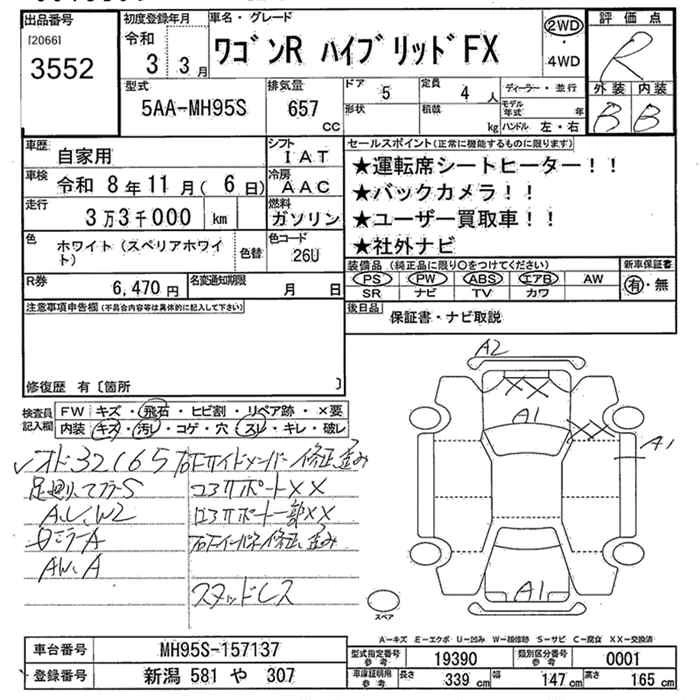 出品番号
[2066]
3552
初度登録年月
令和
3 3月
車名・グレード
ワゴンR ハイブリッドFX
2WD
・
4WD
評価点
R
外装 内装
B B
型式
5AA-MH95S
排気量
657
cc
ドア 5
形状
定員 4人
積載 kg
ディーラー・並行
モデル年式 年
ハンドル 左・右
車歴
自家用
シフト
IAT
車検 令和 8年11月(6日)
冷房
AAC
走行 3万3千000 km
燃料
ガソリン
色 ホワイト(スペリアホワイト)
色替
色コード
26U
R券 6,470円
名変通知期限 月 日
セールスポイント(正常に機能するものに限ります)
★運転席シートヒーター!!
★バックカメラ!!
★ユーザー買取車!!
★社外ナビ
装備品(純正品に限り○をつけてください)
新車保証書
PS PW ABS エアB AW
SR ナビ TV カワ
有・無
後日品 保証書・ナビ取説
注意事項申告欄(不具合内容等は具体的に記入して下さい)
修復歴 有〔箇所 〕
検査員記入欄
FW キズ・飛石・ヒビ割・リペア跡・×要
内装 キズ・汚レ・コゲ・穴・スレ・キレ・破レ
32165
A
スタッドレス
A2
XX
A1
XX
A1
A1
スペア
A－キズ E－エクボ U－凹み W－補修跡 S－サビ C－腐食 XX－交換済
車台番号 MH95S-157137
登録番号 新潟 581 や 307
型式指定番号 参考 19390
類別区分番号 参考 0001
車庫証明用 参考
長さ 339 cm
幅 147 cm
高さ 165 cm